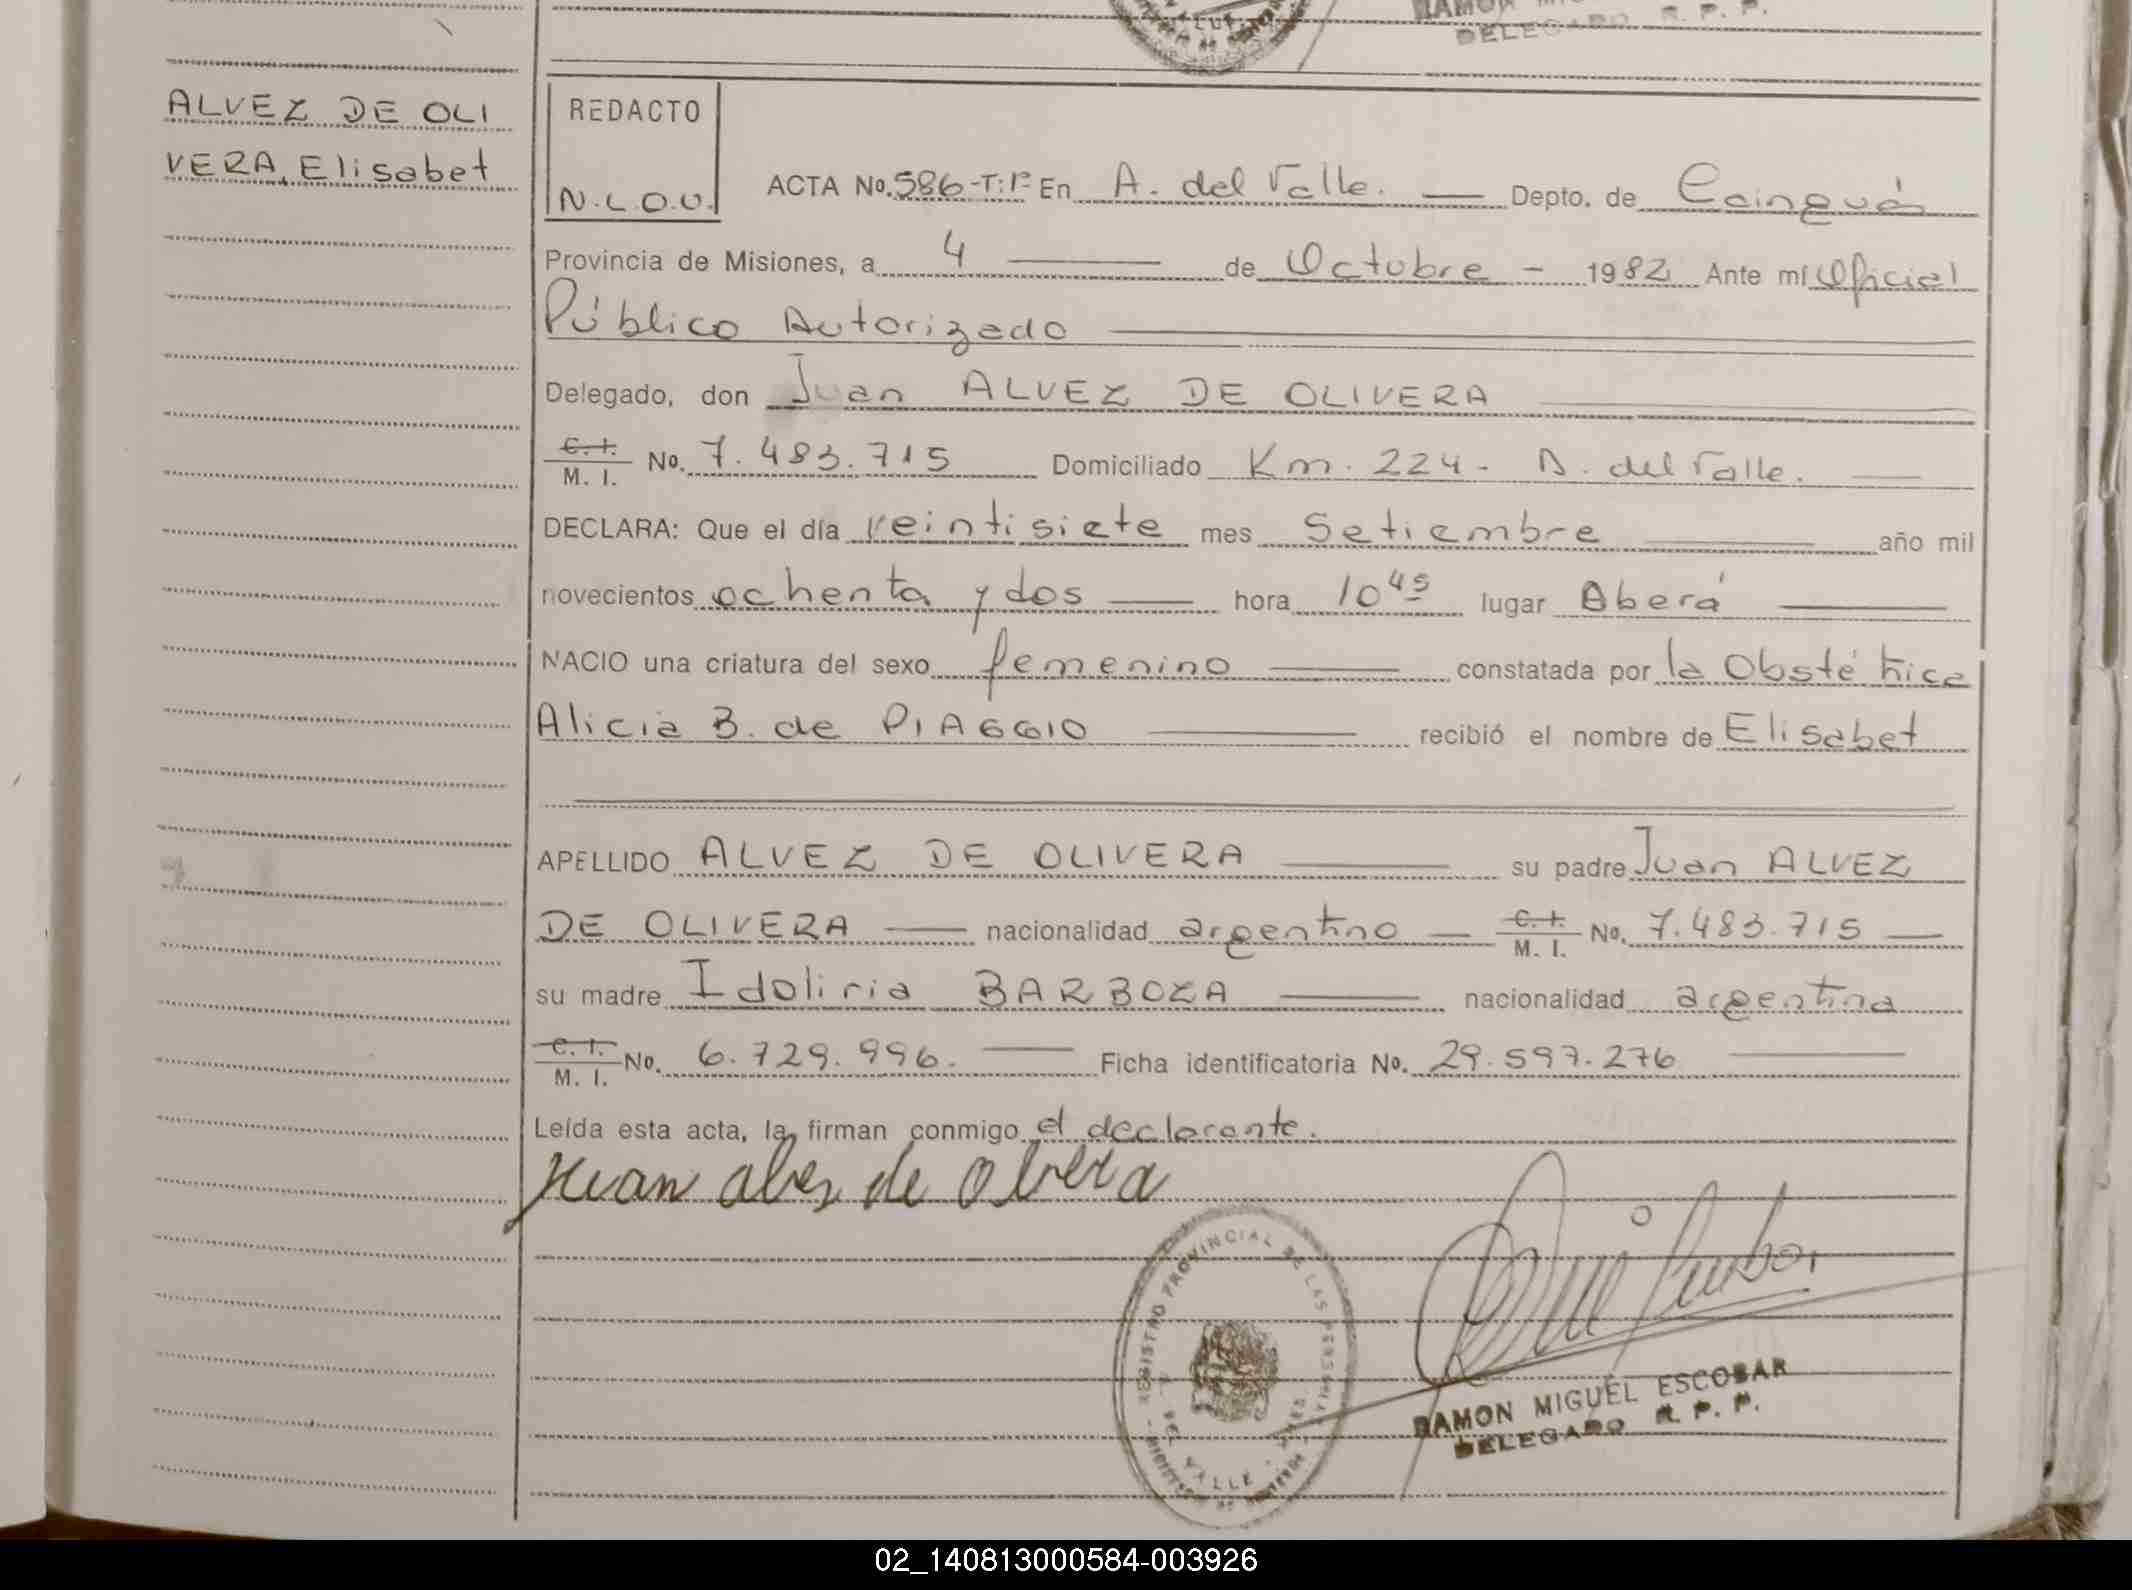 RAMON MI
DELEGADO R. P. P.
ALVEZ DE OLI
VERA, Elisabet
REDACTO
N.L.O.V.
ACTA No. 586-T:1º En A. del Valle. Depto. de Cainguás
Provincia de Misiones, a 4 de Octubre - 1982 Ante mí Oficial
Público Autorizado
Delegado, don Juan ALVEZ DE OLIVERA
C. I.
M. I. No. 7.483.715 Domiciliado Km. 224. A. del Valle.
DECLARA: Que el día veintisiete mes Setiembre año mil
novecientos ochenta y dos hora 10 45 lugar Oberá
NACIO una criatura del sexo femenino constatada por la Obstétrica
Alicia B. de PIAGGIO recibió el nombre de Elisabet
APELLIDO ALVEZ DE OLIVERA su padre Juan ALVEZ
DE OLIVERA nacionalidad argentino C. I. M. I. No. 7.483.715
su madre Idoliria BARBOZA nacionalidad argentina
C. I.
M. I. No. 6.729.996. Ficha identificatoria No. 29.597.276
Leída esta acta, la firman conmigo el declarante.
Juan alves de Olivera
REGISTRO PROVINCIAL DE LAS PERSONAS
DEL VALLE
RAMON MIGUEL ESCOBAR
DELEGADO R. P. P.
02_140813000584-003926